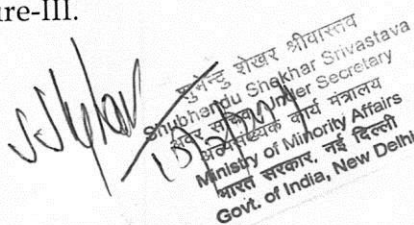 ure-III.
शुभेन्दु शेखर श्रीवास्तव
Shubhendu Shekhar Srivastava
अवर सचिव/Under Secretary
अल्पसंख्यक कार्य मंत्रालय
Ministry of Minority Affairs
भारत सरकार, नई दिल्ली
Govt. of India, New Delhi